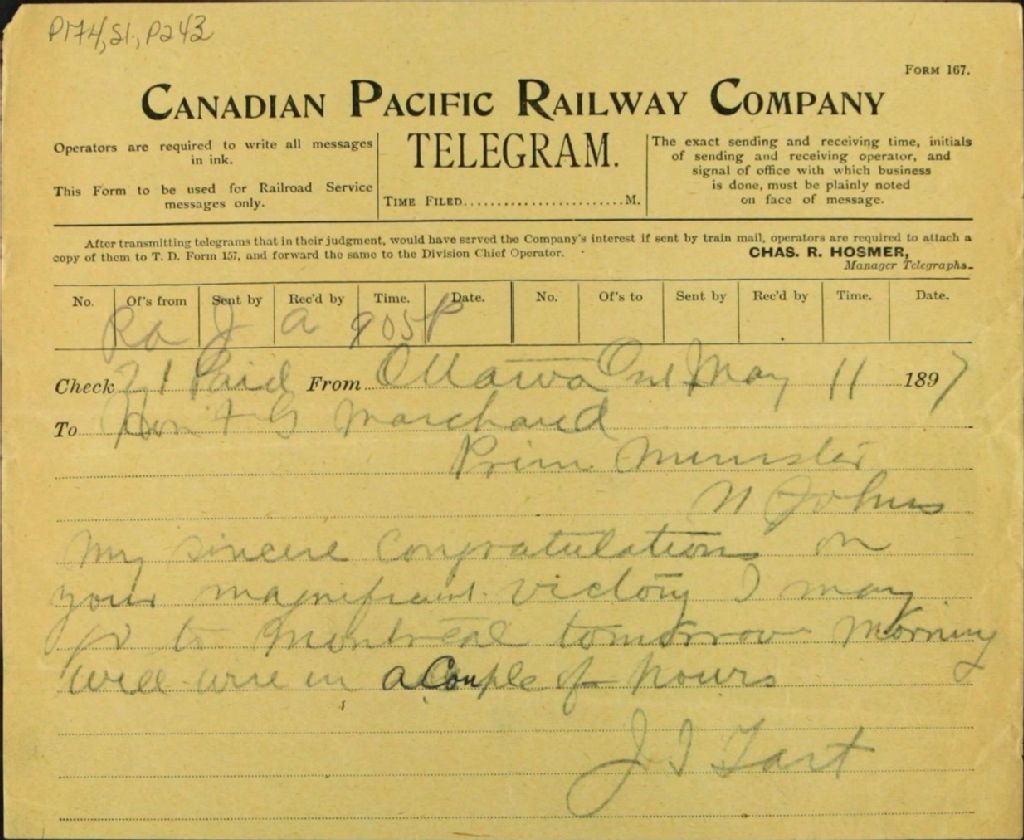 P174, S1, P243
FORM 167.
CANADIAN PACIFIC RAILWAY COMPANY
TELEGRAM.
Operators are required to write all messages
in ink.
This Form to be used for Railroad Service
messages only.
TIME FILED........................M.
The exact sending and receiving time, initials
of sending and receiving operator, and
signal of office with which business
is done, must be plainly noted
on face of message.
After transmitting telegrams that in their judgment, would have served the Company's interest if sent by train mail, operators are required to attach a
copy of them to T. D. Form 157, and forward the same to the Division Chief Operator.
CHAS. R. HOSMER,
Manager Telegraphs.
No. Of's from Sent by Rec'd by Time. Date. No. Of's to Sent by Rec'd by Time. Date.
Ra J a 905P
Check 21 Paid From Ottawa Ont May 11 1897
To Hon F G Marchand
Prim Minister
St Johns
My sincere Congratulations on
your magnificent victory I may
go to Montreal tomorrow morning
will wire in a Couple of hours
J I Tart